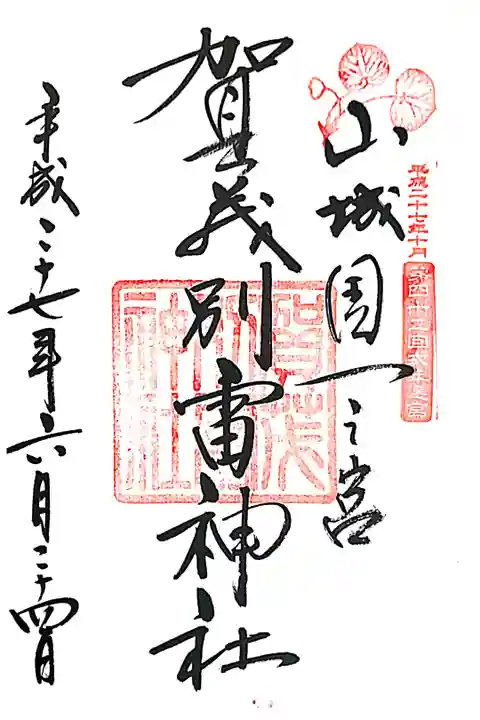 平成二十七年十月
第四十二回式年遷宮
山城国一之宮
賀茂別雷神社
平成二十七年六月二十四日